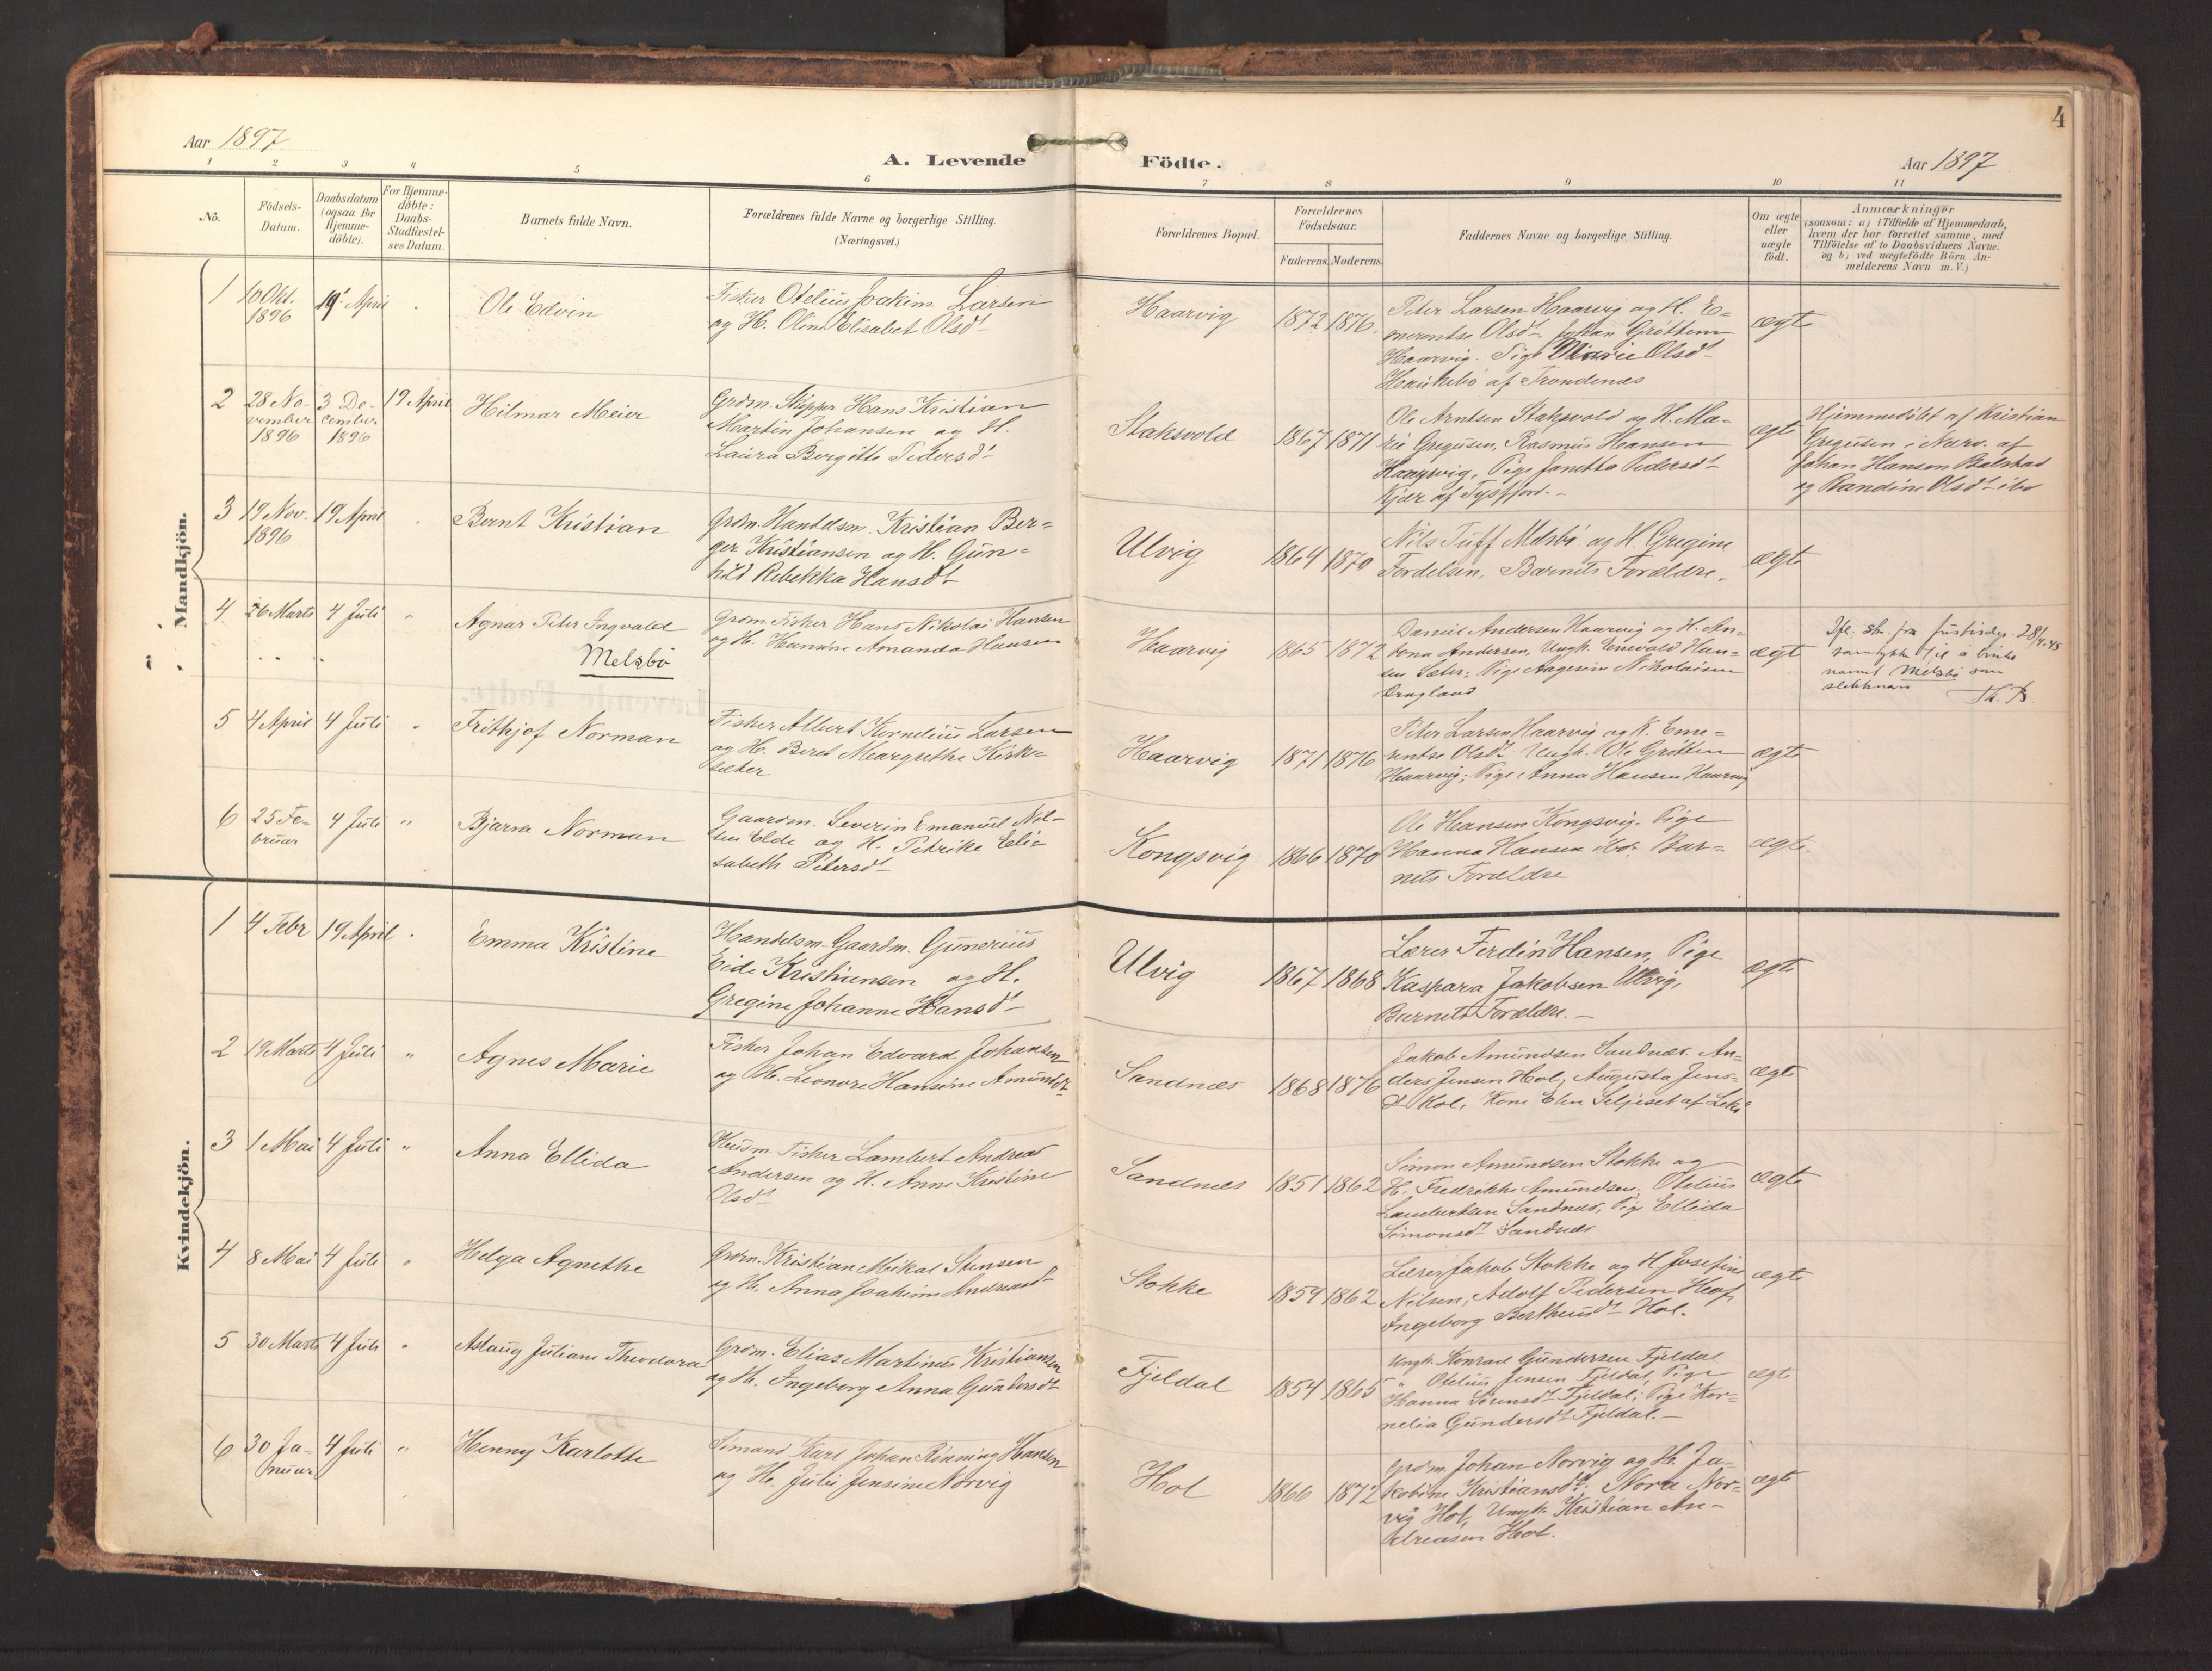 4
Aar 1897
A. Levende Födte.
Aar 1897
1 2 3 4 5 6 7 8 9 10 11
No.
Födsels-
Datum.
Daabsdatum
(ogsaa for
Hjemme-
döbte).
For Hjemme-
döbte:
Daabs-
Stadfæstel-
ses Datum.
Barnets fulde Navn.
Forældrenes fulde Navne og borgerlige Stilling.
(Næringsvei.)
Forældrenes Bopæl.
Forældrenes
Födselsaar.
Faderens. Moderens.
Faddernes Navne og borgerlige Stilling.
Om ægte
eller
uægte
födt.
Anmærkninger
(saasom: a) i Tilfælde af Hjemmedaab,
hvem der har forrettet samme, med
Tilföielse af to Daabsvidners Navne.
og b) ved uægtefödte Börn An-
melderens Navn m. V.)
Mandkjön.
1
10 Okt.
1896
19 April
Ole Edvin
Fisker Otelius Joakim Larsen
og H. Oline Elisabet Olsdt
Haarvig
1872 1876
Peter Larsen Haarvig og H. E-
merentse Olsdt Johan Gröttem
Haarvig. Pige Marie Olsdt
af Trondenæs
ægte
2
28 No-
vember
1896
3 De-
cember
1896
19 April
Hilmar Meier
Grdm. Skipper Hans Kristian
Martin Johansen og H.
Laura Bergitte Pedersdt
Staksvold
1867 1871
Ole Arntsen Staksvold og H. Ma-
rie Gregusen, Rasmus Hansen
Haarvig, Pige Janetta Pedersdt
Kjær af Tysfjord.-
ægte
Hjemmedöbt af Kristian
Gregusen i Nærv. af
Johan Hansen
og Randine Olsdt ibd
3
19 Nov.
1896
19 April
Bernt Kristian
Grdm. Handelsm. Kristian Ber=
ger Kristiansen og H. Gun=
hild Rebekka Hansdt
Ulvig
1864 1870
Nils Tuff Melsbö og H. Gregine
Fordelsen. Barnets Forældre.
ægte
4
26 Marts
4 Juli
"
Agnar Peter Ingvald
Melsbö
Grdm. Fisker Hans Nikolai Hansen
og H. Hansine Amanda Hansen
Haarvig
1865 1872
Daniel Andersen Haarvig og H. An-
tona Andersen, Ungk. Enevald Han-
sen Sæter, Pige Aagesine Nikolaisen
Drageland
ægte
Ifl. skr. fra justisdep. 28/4.45
samtykke til å bruke
navnet Melsbö som
slektsnavn
Th. B.
5
4 April
4 Juli
Frithjof Norman
Fisker Albert Kornelius Larsen
og H. Beret Margrethe Kirk-
sæter
Haarvig
1871 1876
Peter Larsen Haarvig og K. Eme=
rentse Olsdt Ungk. Ole Gröttem
Haarvig; Pige Anna Hansen Haarvig
ægte
6
25 Fe-
bruar
4 Juli
"
Bjarne Norman
Gaardm. Severin Emanuel Nil-
sen Elde og H. Petrike Eli=
sabeth Petersdt
Kongsvig
1866 1870
Ole Hansen Kongsvig. Pige
Hanna Hansen ibd. Bar=
nets Forældre
ægte
Kvindekjön.
1
4 Febr
19 April
Emma Kristine
Handelsm. Gaardm. Gunerius
Eide Kristiansen og H.
Gregine Johanne Hansdt
Ulvig
1867 1868
Lærer Ferdin Hansen, Pige
Kaspara Jakobsen Ulvig,
Barnets Forældre.-
ægte
2
19 Marts
4 Juli
"
Agnes Marie
Fisker Johan Edvard Johansen
og H. Leonore Hansine Amundsdt
Sandnæs
1868 1876
Jakob Amundsen Sandnæs. An-
ders Jensen Hol, Augusta Jens-
dt Hol, Kone Elen Seljeset af
ægte
3
1 Mai
4 Juli
"
Anna Ellida
Husm. Fisker Lambert Andreas
Andersen og H. Anne Kristine
Olsdt
Sandnæs
1851 1862
Simon Amundsen Stokke og
H. Fredrikke Amundsen, Otelius
Lambertsen Sandnæs, Pige Ellida
Simonsdt Sandnæs
ægte
4
8 Mai
4 Juli
"
Helga Agnethe
Grdm. Kristian Mikal Stensen
og H. Anna Joakime Andreasdt
Stokke
1859 1862
Lærer Jakob Stokke og H. Josefine
Nilsen, Adolf Pedersen Hof,
Ingeborg Berthensdt Hol.
ægte
5
30 Marts
4 Juli
"
Aslaug Juliane Theodora
Grdm. Elias Martinus Kristiansen
og H. Ingeborg Anna Gundersdt
Fjeldal
1854 1865
Ungk. Konrad Gundersen Fjeldal
" Otelius Jensen Fjeldal, Pige
Hanna Sörensdt Fjeldal; Pige Kor=
nelia Gundersdt Fjeldal.-
ægte
6
30 Ja-
nuar
4 Juli
"
Henny Karlotte
Sömand Karl Johan Rönning Hansen
og H. Julie Jensine Norvig
Hol
1866 1872
Grdm. Johan Norvig og H. Ja-
kobine Kristiansdt; Nora Nor=
vig Hol, Ungk. Kristian An-
dreasen Hol.
ægte